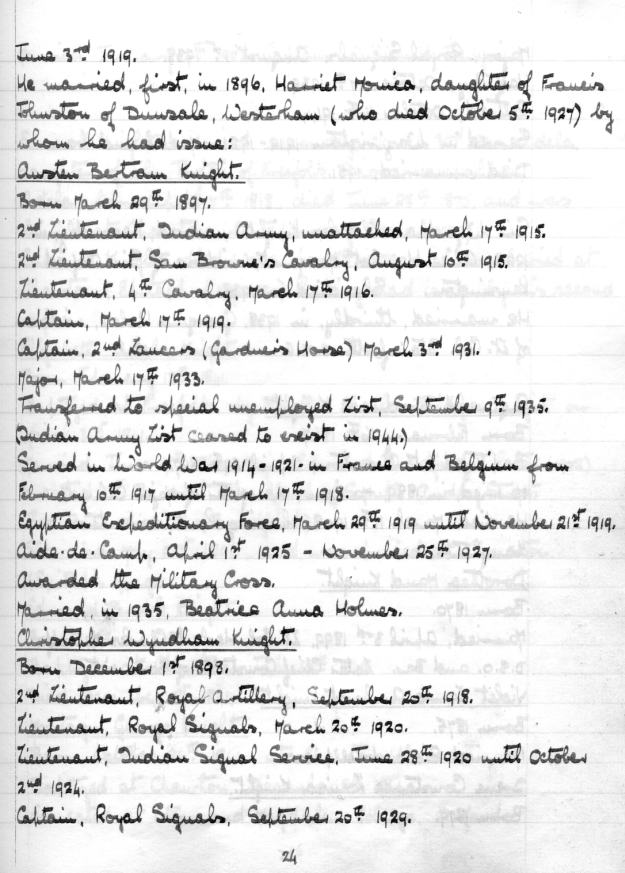 June 3rd 1919.
He married, first, in 1896, Harriet Monica, daughter of Francis
Johnston of Dunsdale, Westerham (who died October 5th 1927) by
whom he had issue:
Austen Bertram Knight.
Born March 29th 1897.
2nd Lieutenant, Indian Army, unattached, March 17th 1915.
2nd Lieutenant, Sam Browne's Cavalry, August 10th 1915.
Lieutenant, 4th Cavalry, March 17th 1916.
Captain, March 17th 1919.
Captain, 2nd Lancers (Gardner's Horse) March 3rd 1931.
Major, March 17th 1933.
Transferred to special unemployed List, September 9th 1935.
(Indian Army List ceased to exist in 1944.)
Served in World War 1914-1921-in France and Belgium from
February 10th 1917 until March 17th 1918.
Egyptian Expeditionary Force, March 29th 1919 until November 21st 1919.
Aide-de-Camp, April 1st 1925 - November 25th 1927.
Awarded the Military Cross.
Married, in 1935, Beatrice Anna Holmes.
Christopher Wyndham Knight.
Born December 1st 1898.
2nd Lieutenant, Royal Artillery, September 20th 1918.
Lieutenant, Royal Signals, March 20th 1920.
Lieutenant, Indian Signal Service, June 28th 1920 until October
2nd 1924.
Captain, Royal Signals, September 20th 1929.
24